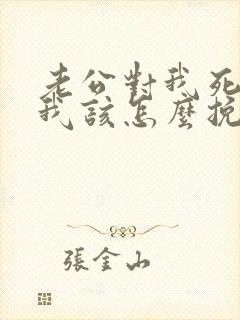 老公對我死
我該怎麼挽
張金山